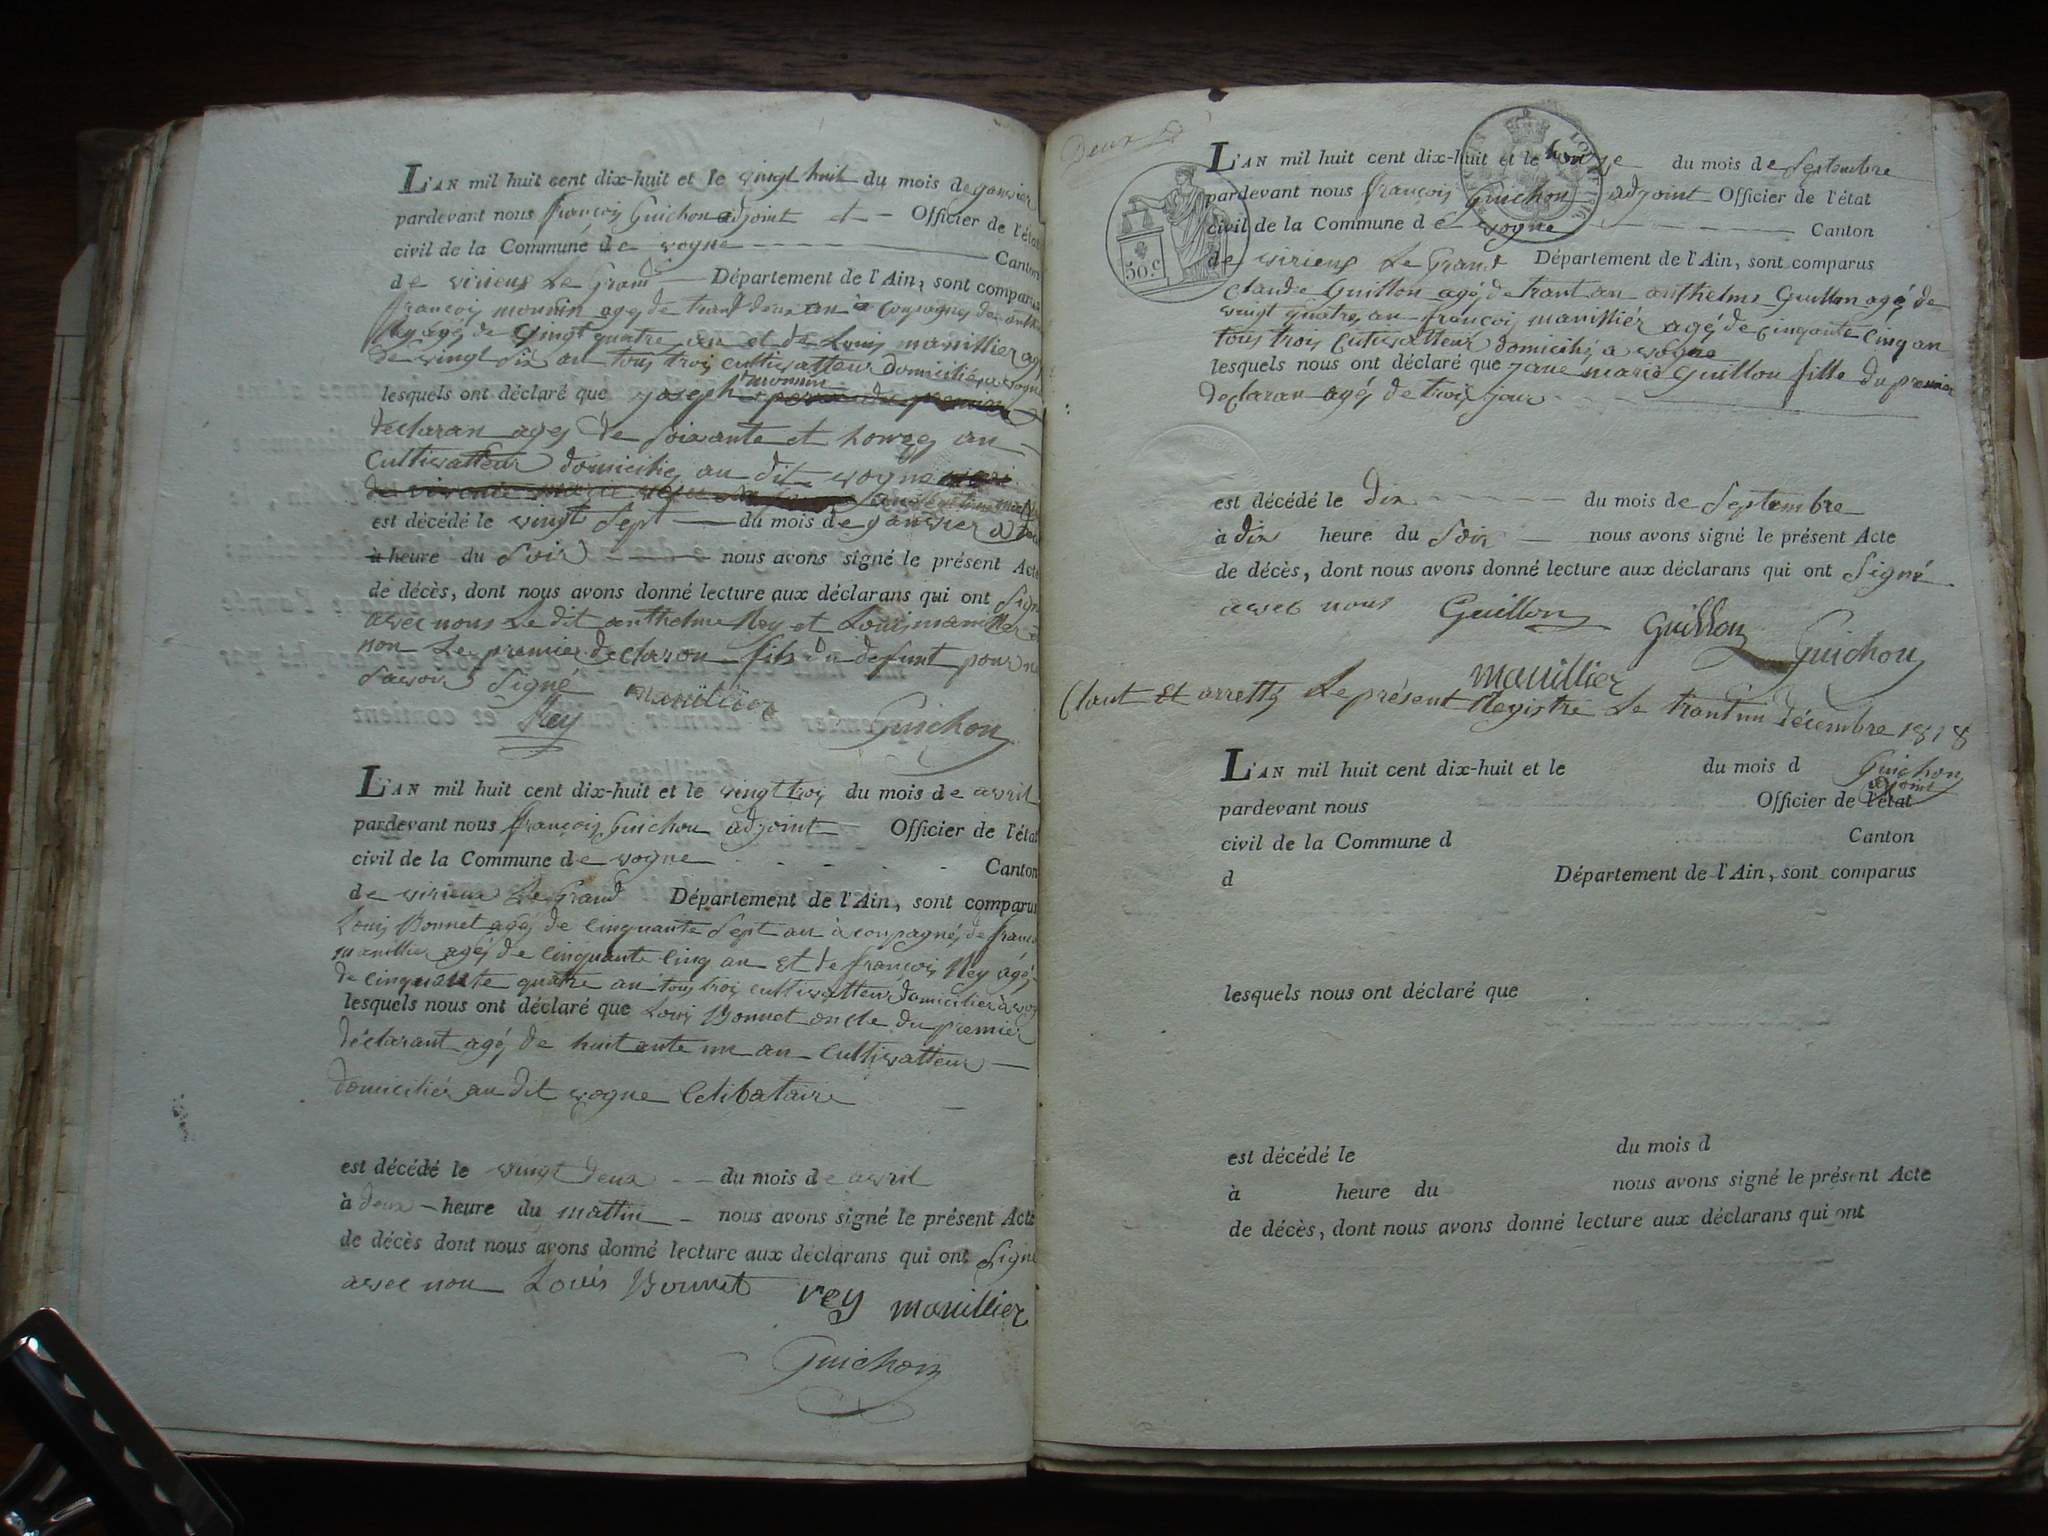 L'AN mil huit cent dix-huit et le vingt huit du mois de janvier
pardevant nous françois Guichon adjoint et Officier de l'état
civil de la Commune de vogne Canton
de virieux Le Grand Département de l'Ain, sont comparus
françois monnin agé de trant deux an à compagné de anth
Rey agé de vingt quatre an et de Louis manillier agé
de vingt six an tous trois cultivatteur domicilié a vogne
monnin
lesquels ont déclaré que joseph pere du premier
declaran agé de soixante et honze an
Cultivatteur domicilié au dit vogne
est décédé le vingt sept du mois de janvier a
à heure du soir nous avons signé le présent Acte
de décès, dont nous avons donné lecture aux déclarans qui ont signé
avec nous Le dit anthelme Rey et Louis manillier et
non Le premier declaran fils du defunt pour ne
savoir signé manillier
Rey Guichon
L'AN mil huit cent dix-huit et le vingt trois du mois de avril
pardevant nous françois Guichon adjoint Officier de l'état
civil de la Commune de vogne Canton
de virieux Le Grand Département de l'Ain, sont comparus
Louis Bonnet agé de cinquante sept an à compagné de franco
manillier agé de cinquante cinq an et de françois Rey agé
de cinquante quatre an tous trois cultivatteur domicilier à vog
lesquels nous ont déclaré que Louis Bonnet oncle du premier
déclarant agé de huitante un an cultivatteur
domicilié au dit vogne Celibataire
est décédé le vingt deux du mois de avril
à deux heure du mattin nous avons signé le présent Acte
de décès dont nous avons donné lecture aux déclarans qui ont signé
avec nou Louis Bonnet rey manillier
Guichon
Deux
L'AN mil huit cent dix-huit et le honze du mois de septembre
pardevant nous françois Guichon adjoint Officier de l'état
civil de la Commune de vogne Canton
50.c
de virieux Le Grand Département de l'Ain, sont comparus
claude Guillon agé de trant an anthelme Guillon agé de
vingt quatre an françois manillier agé de cinqante cinq an
tous trois cutivatteur domicilié a vogne
lesquels nous ont déclaré que jane marie Guillon fille du premier
declaran agé de trois jour
est décédé le dix du mois de septembre
à dix heure du soir nous avons signé le présent Acte
de décès, dont nous avons donné lecture aux déclarans qui ont signé
avec nous Guillon Guillon Guichon
manillier
Clout Et arretté Le présent Registre Le trant un décembre 1818
Guichon
adjoint
L'AN mil huit cent dix-huit et le du mois d
pardevant nous Officier de l'état
civil de la Commune d Canton
d Département de l'Ain, sont comparus
lesquels nous ont déclaré que
est décédé le du mois d
à heure du nous avons signé le présent Acte
de décès, dont nous avons donné lecture aux déclarans qui ont